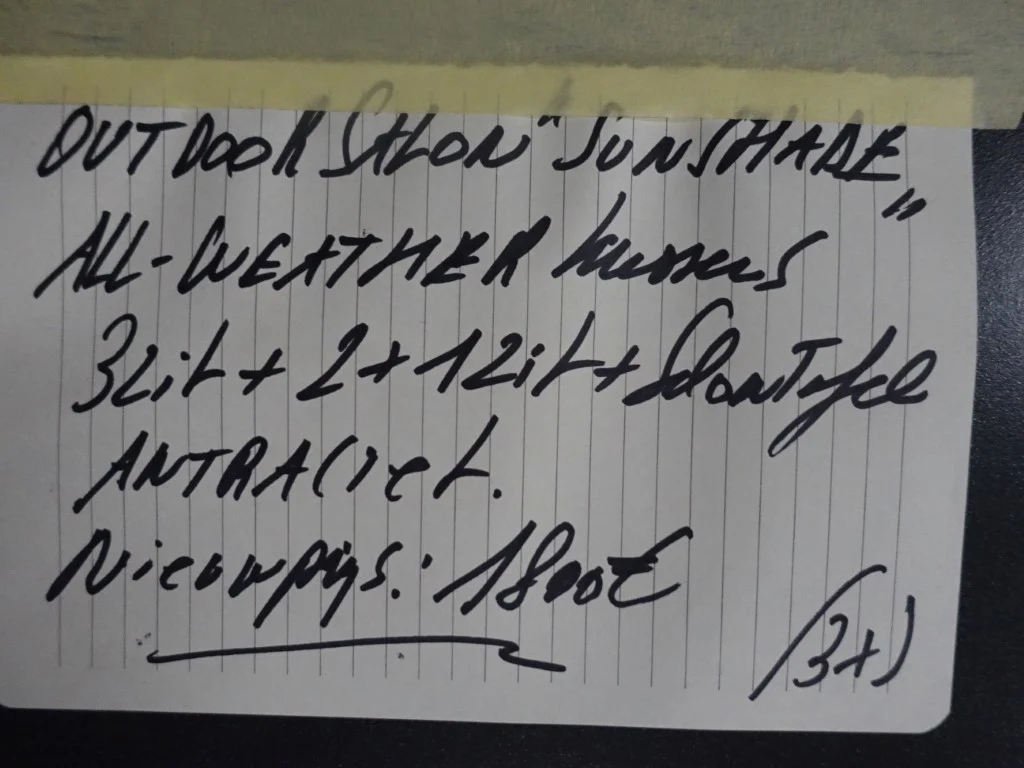 OUTDOOR SALON "SUNSHADE"
ALL-WEATHER kussens
3zit + 2 + 1 zit + Salontafel
ANTRACIET.
Nieuwprijs: 1800€
(3x)